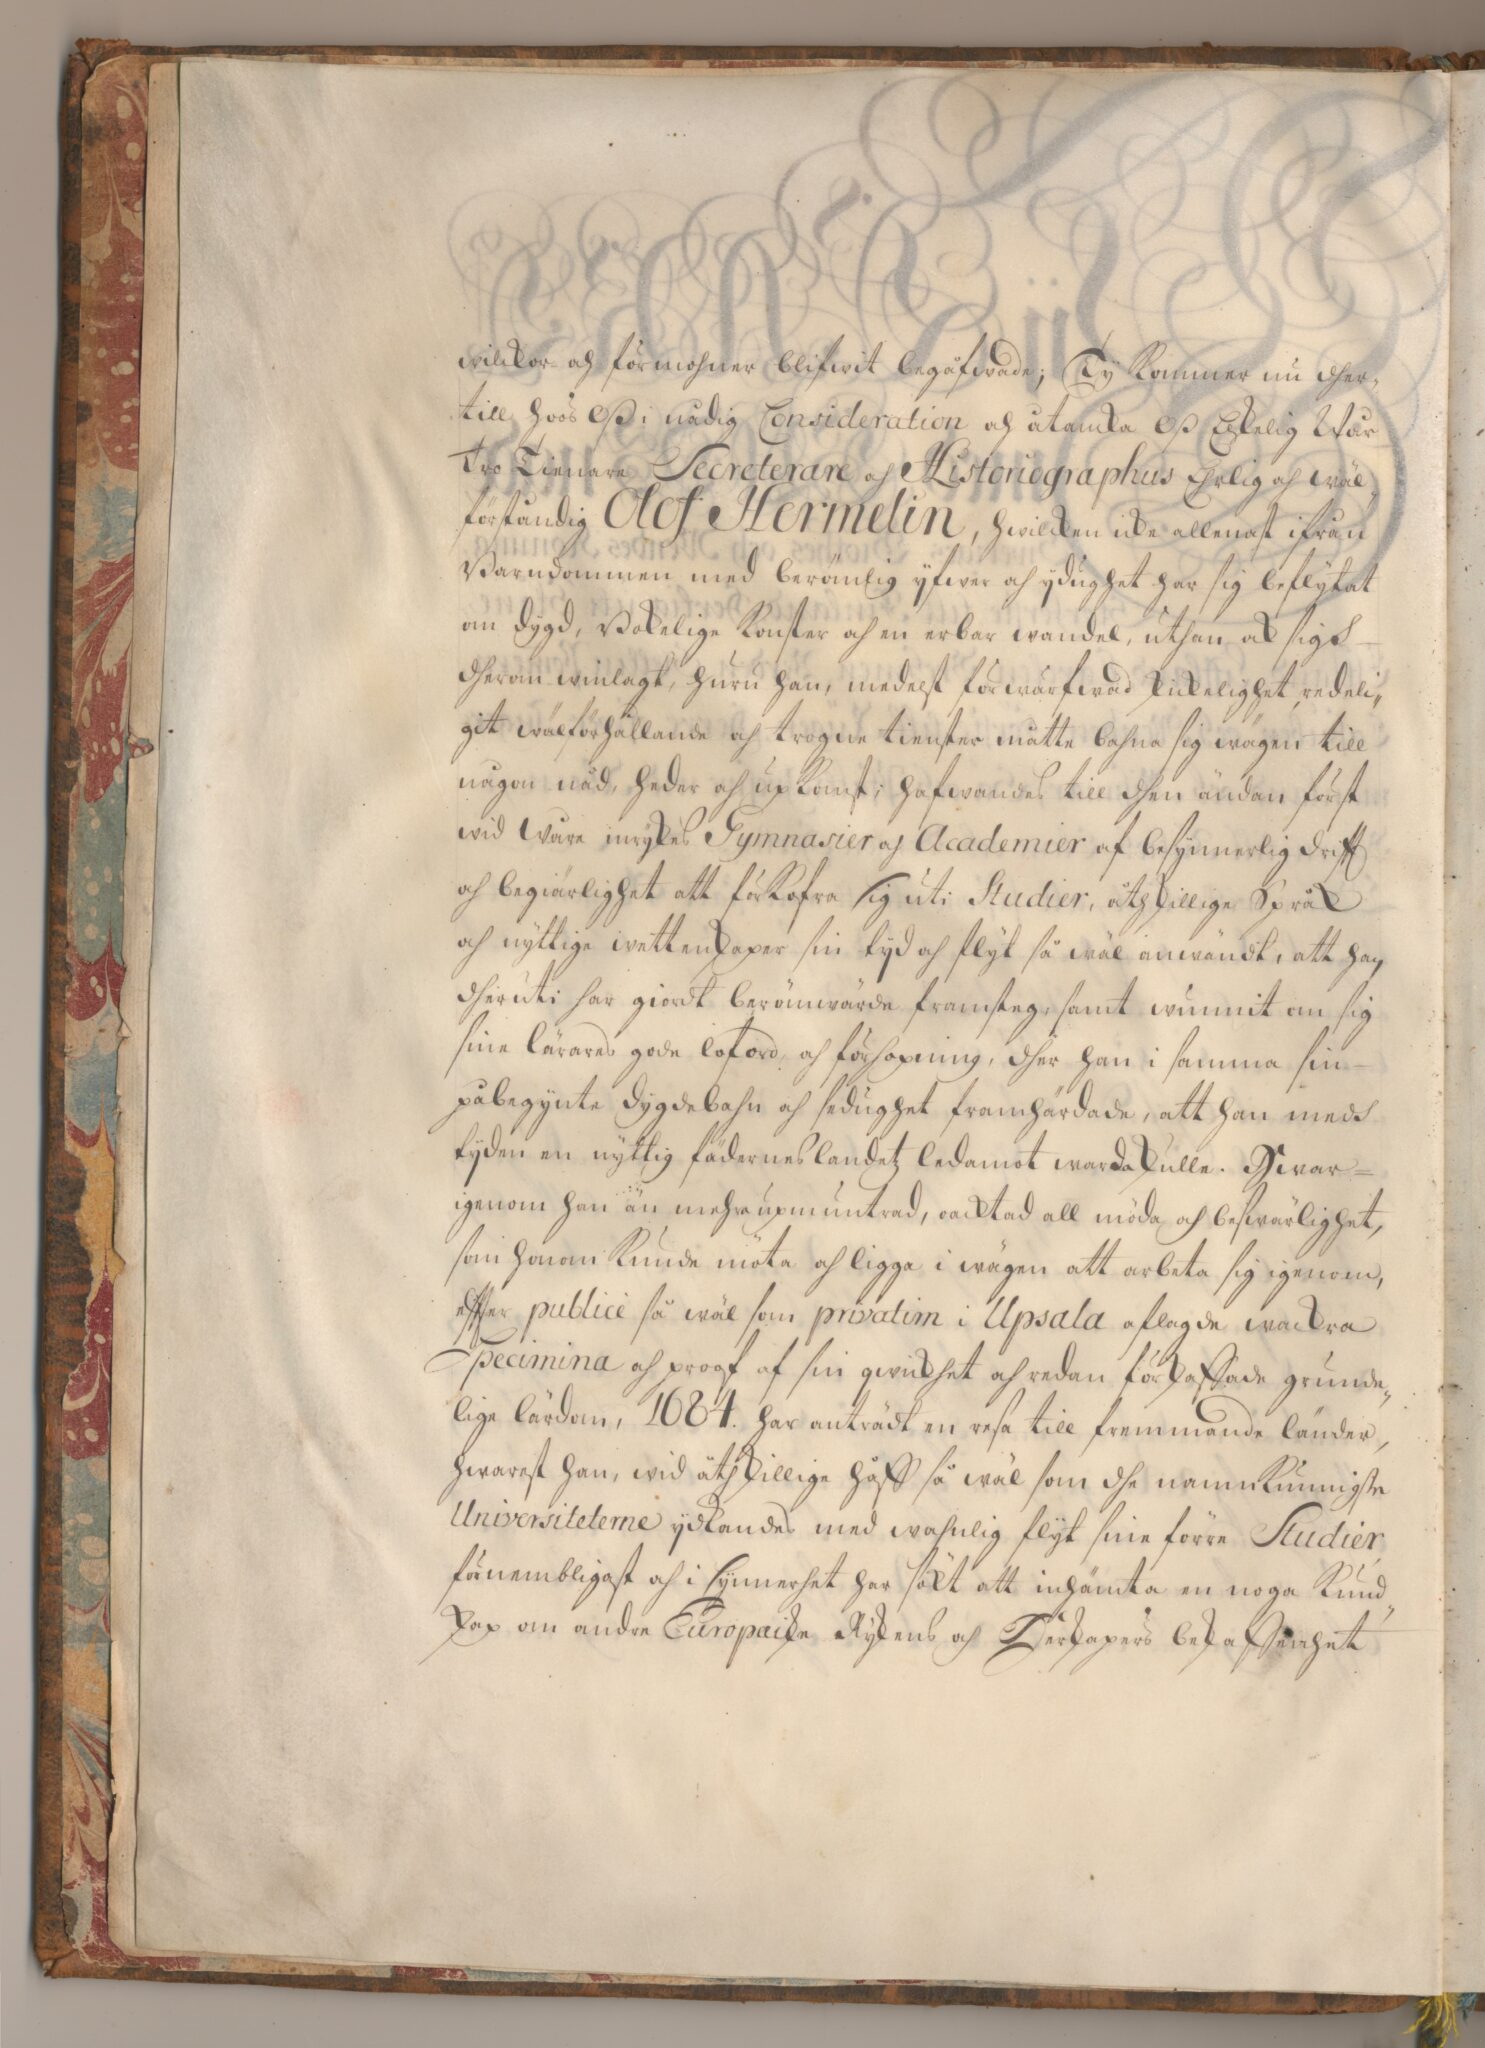 willkor och förmohner blifwit begåfwade; Ty kommer nu dher-
till hoos Oß i nådig Consideration och åtancka Oß Elskelig Wår
Tro Tienare Secreterare och Historiographus Ehrlig och wäl-
förståndig Olof Hermelin, hwilcken icke allenast ifrån
Barndommen med berömlig yfwer och ydughet har sig beflytat
om dygd, Bokelige konster och en erbar wandel, uthan ock sigh
dherom winlagt, huru han, medelst förwärfwad skickelighet, redeli-
git wälförhållande och trogne tienster måtte bahna sig wägen till
någon nåd, heder och upkomst; hafwandes till dhen ändan först
wid Wåre inrykes Gymnasier och Academier af besynnerlig drifft
och begiärlighet att förkofra sig uti Studier, åthskillige Språk
och nyttige wettenskaper sin tyd och flyt så wäl anwändt, att han
dheruti har giordt berömwärde framsteg, samt wunnit om sig
sine lärares gode loford och förhopning, dher han i samma sin
påbegynte dygdebahn och sedughet framhärdade, att han medh
tyden en nyttig fäderneslandetz ledamot warda skulle. Hwar-
igenom han än mehra upmuntrad, oacktad all möda och beswärlighet,
som honom kunde möta och ligga i wägen att arbeta sig igenom,
effter publicè så wäl som privatim i Upsala aflagde wackra
Specimina och prof af sin qwickhet och redan förskaffade grunde-
lige lärdom, 1684. har anträdt en resa till fremmande länder,
hwarest han, wid åthskillige håff så wäl som dhe namnkunnigste
Universiteterne ydkandes med wahnlig flyt sine förre Studier
förnembligast och i synnerhet har sökt att inhämta en noga kund-
skap om andre Europaiske Rykens och Herskapers beskaffenhet